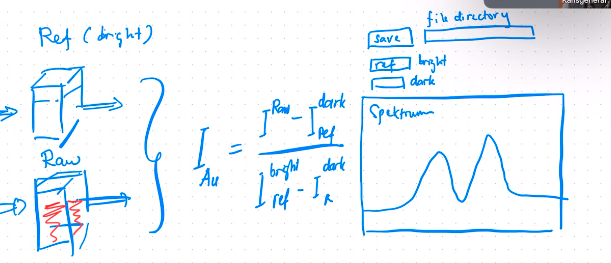 Ref (bright)
Raw
I_Au = (I^Raw - I_Ref^dark) / (I_ref^bright - I_R^dark)
file directory
save
ref bright
dark
Spektrum